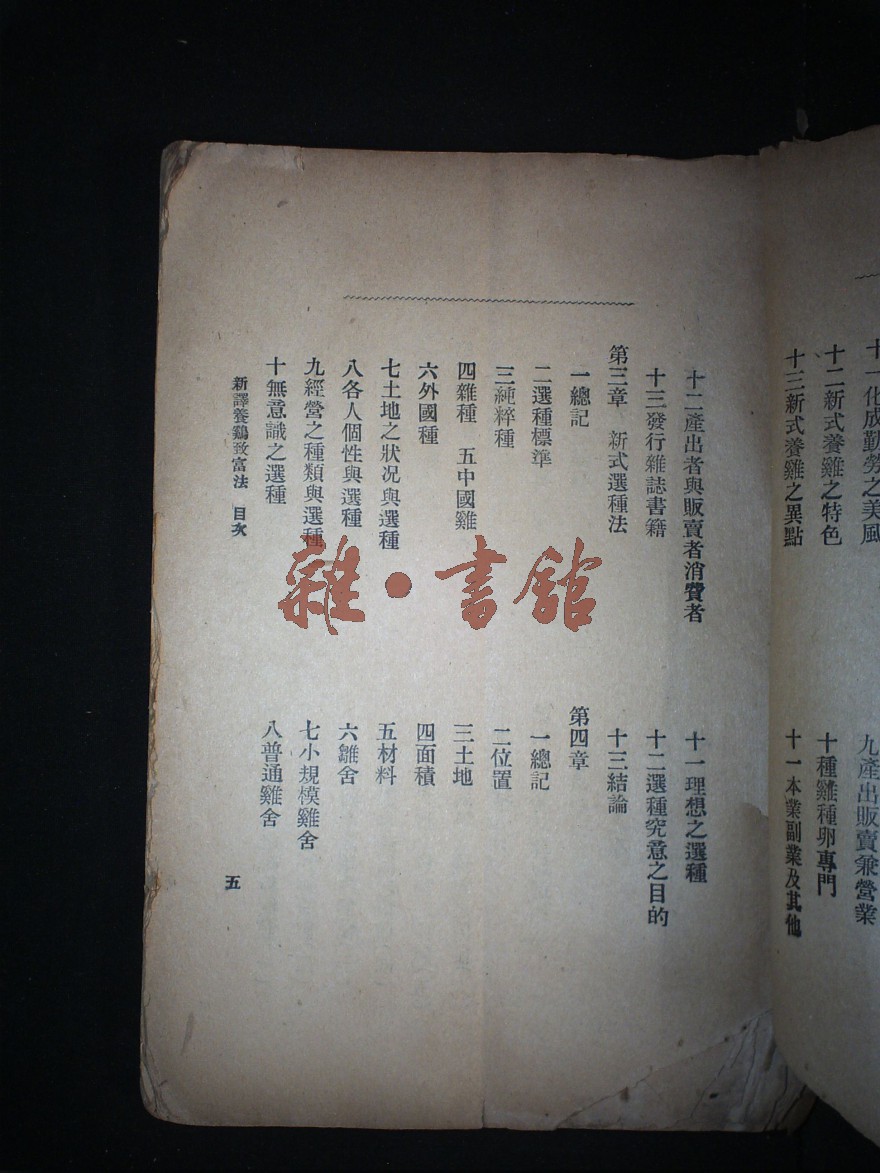 十一化成勤勞之美風
十二新式養雞之特色
十三新式養雞之異點
九產出販賣兼營業
十種雞種卵專門
十一本業副業及其他
十二產出者與販賣者消費者
十三發行雜誌書籍
第三章 新式選種法
一總記
二選種標準
三純粹種
四雜種 五中國雞
六外國種
七土地之狀況與選種
八各人個性與選種
九經營之種類與選種
十無意識之選種
十一理想之選種
十二選種究意之目的
十三結論
第四章
一總記
二位置
三土地
四面積
五材料
六雛舍
七小規模雞舍
八普通雞舍
新譯養鷄致富法 目次
五
雜·書館